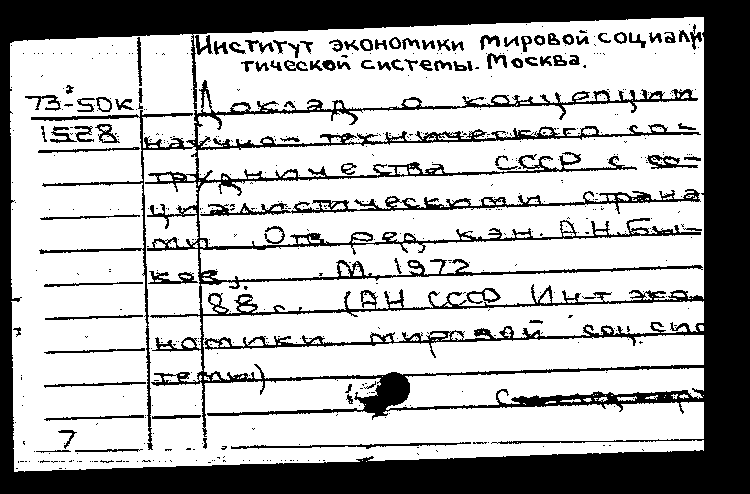 Институт экономики мировой социалис
тической системы. Москва.
73-50к
1528
Доклад о концепции
научно-технического со-
трудничества СССР с со-
циалистическими страна-
ми. Отв. ред. к.э.н. А.Н.Бы-
ков. М. 1972
88 с. (АН СССР Ин-т эко-
номики мировой соц. сис
темы)
7